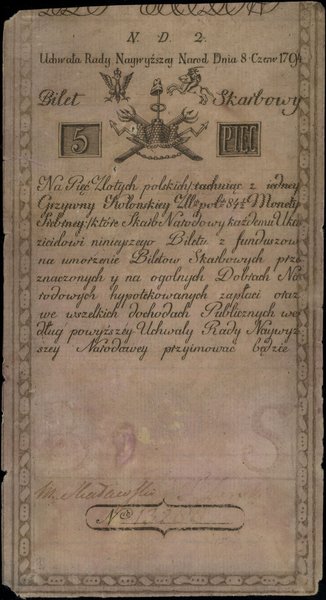 N. D. 2.
Uchwała Rady Naywyższey Narod. Dnia 8 Czerw 1794
Bilet Skarbowy
5 PIĘĆ
Na Pięć Złotych polskich rachuiąc z iedney
Grzywny Kolońskiey Złł. pol: 84½ Monety
Srebrney, które Skarb Narodowy każdemu Oka
zicielowi ninieyszego Biletu z funduszow
na umorzenie Biletow Skarbowych prze
znaczonych y na ogolnych Dobrach Na
rodowych hypotekowanych zapłaci oraz
we wszelkich dochodach Publicznych we
dług powyższéy Uchwały Rady Naywyż
széy Narodowey przyimować będzie
Nr